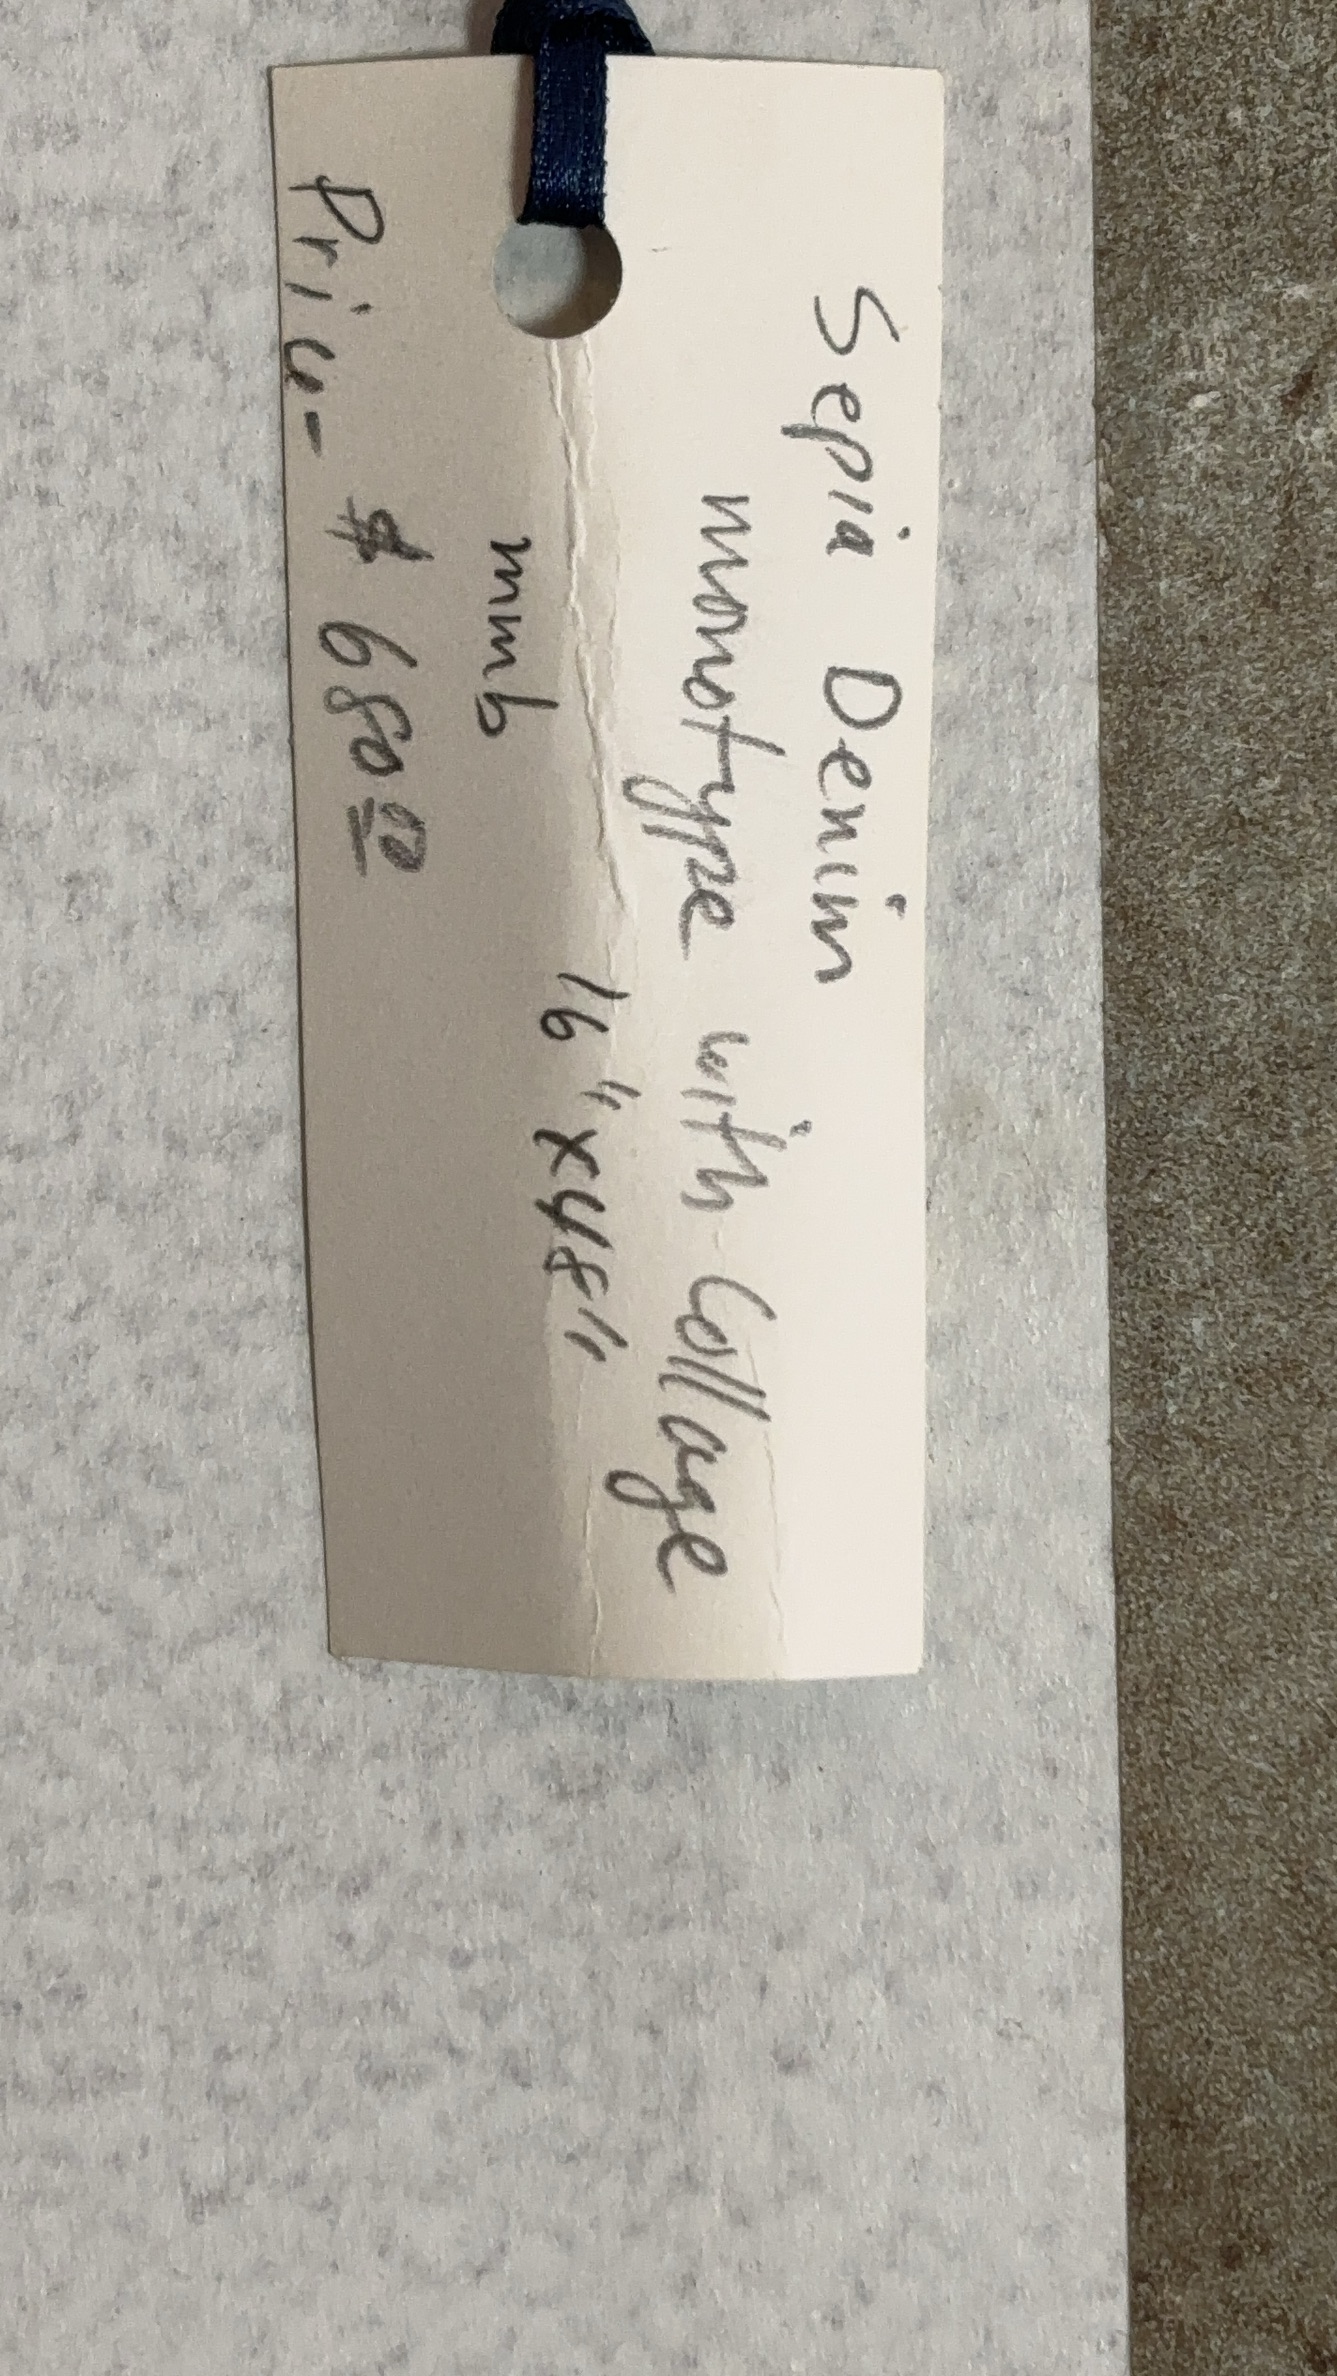 Sepia Denim
monotype with Collage
16" x 48"
mmb
Price - $680.00